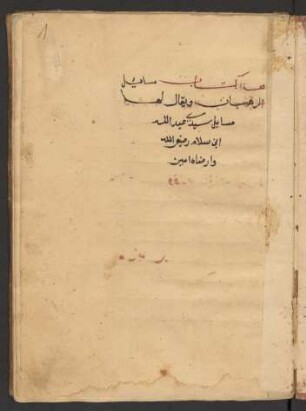 هذا كتاب مسايل
الرهبان ويقال لها
مسايل سيدي عبد الله
ابن سلام رضي الله
وارضاه امين